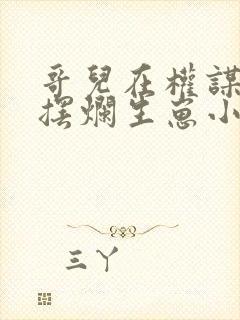 哥兒在權謀
擺爛生崽小
三丫